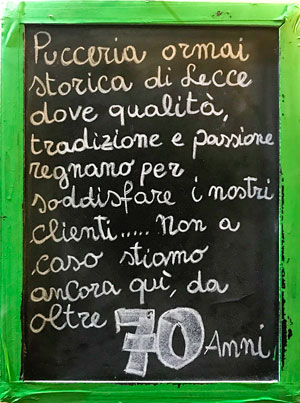 Pucceria ormai
storica di Lecce
dove qualità,
tradizione e passione
regnano per
soddisfare i nostri
clienti..... Non a
caso stiamo
ancora quì, da
oltre 70 Anni